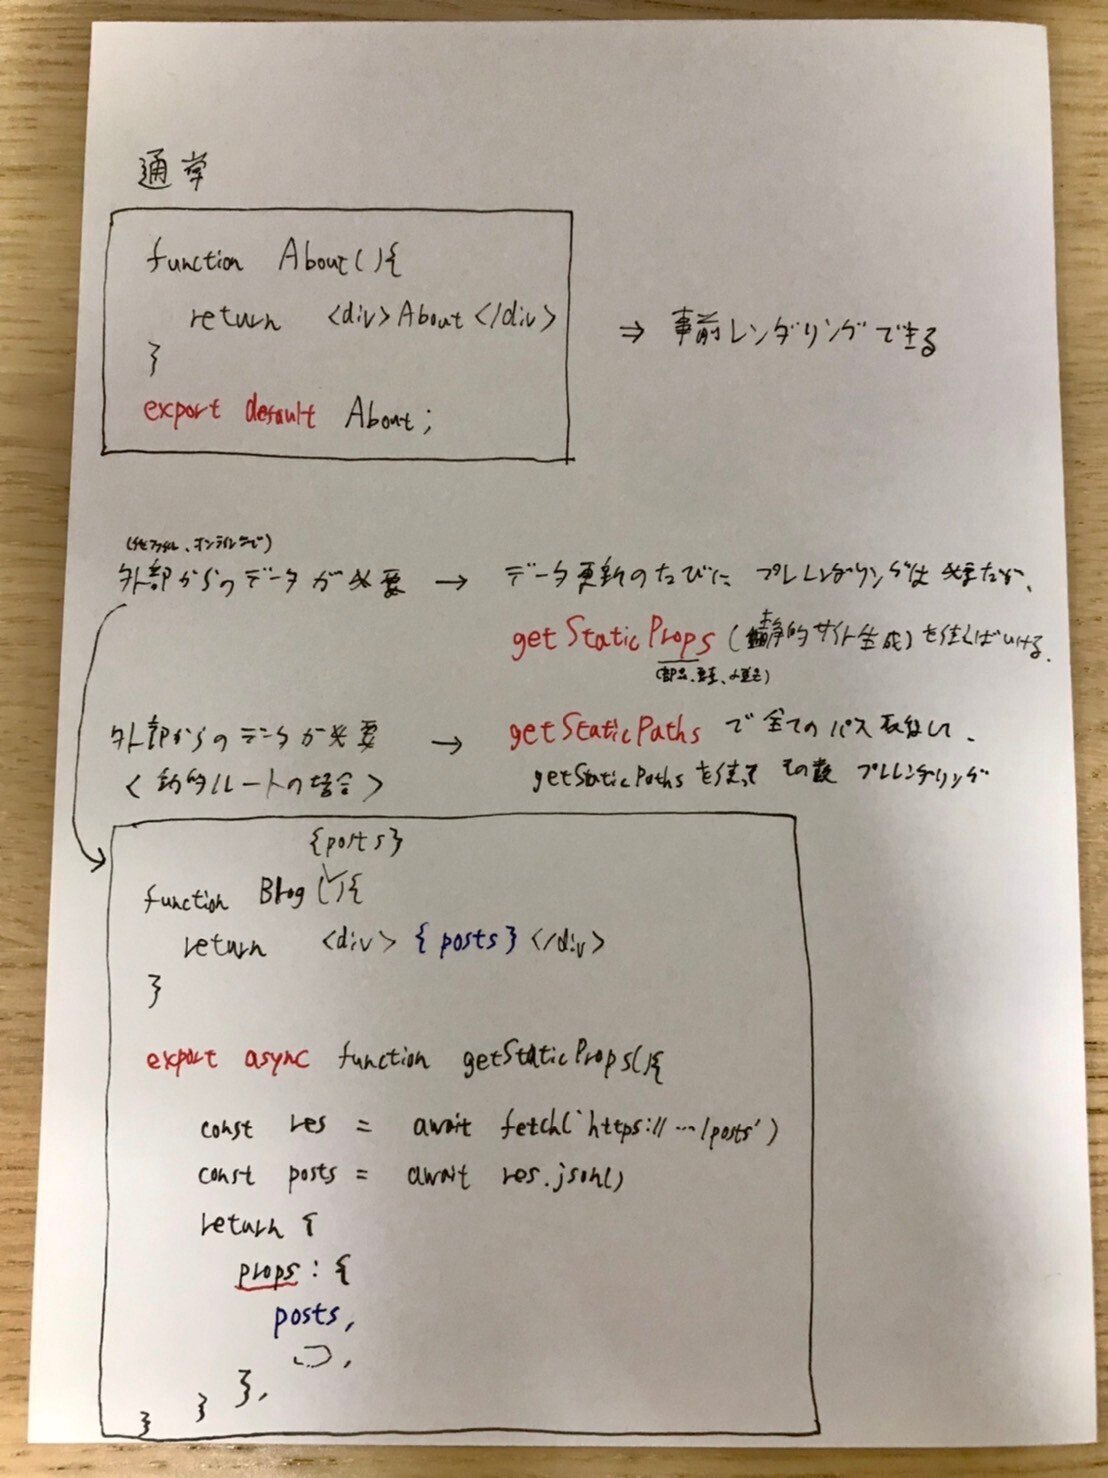 通常
function About(){
return <div>About</div>
}
export default About;
⇒ 事前レンダリングできる
(他ファイル、オンラインなど)
外部からのデータが必要 → データ更新のたびに プレレンダリングは必要だが、
getStaticProps (静的サイト生成) を使えばいける。
(部品、
外部からのデータが必要 → getStaticPaths で全てのパス取得して、
<動的ルートの場合> getStaticPaths を使って その数 プレレンダリング
{posts}
function Blog(){
return <div> {posts} </div>
}
export async function getStaticProps(){
const res = await fetch(`https://…/posts')
const posts = await res.json()
return {
props: {
posts,
,
},
}
}